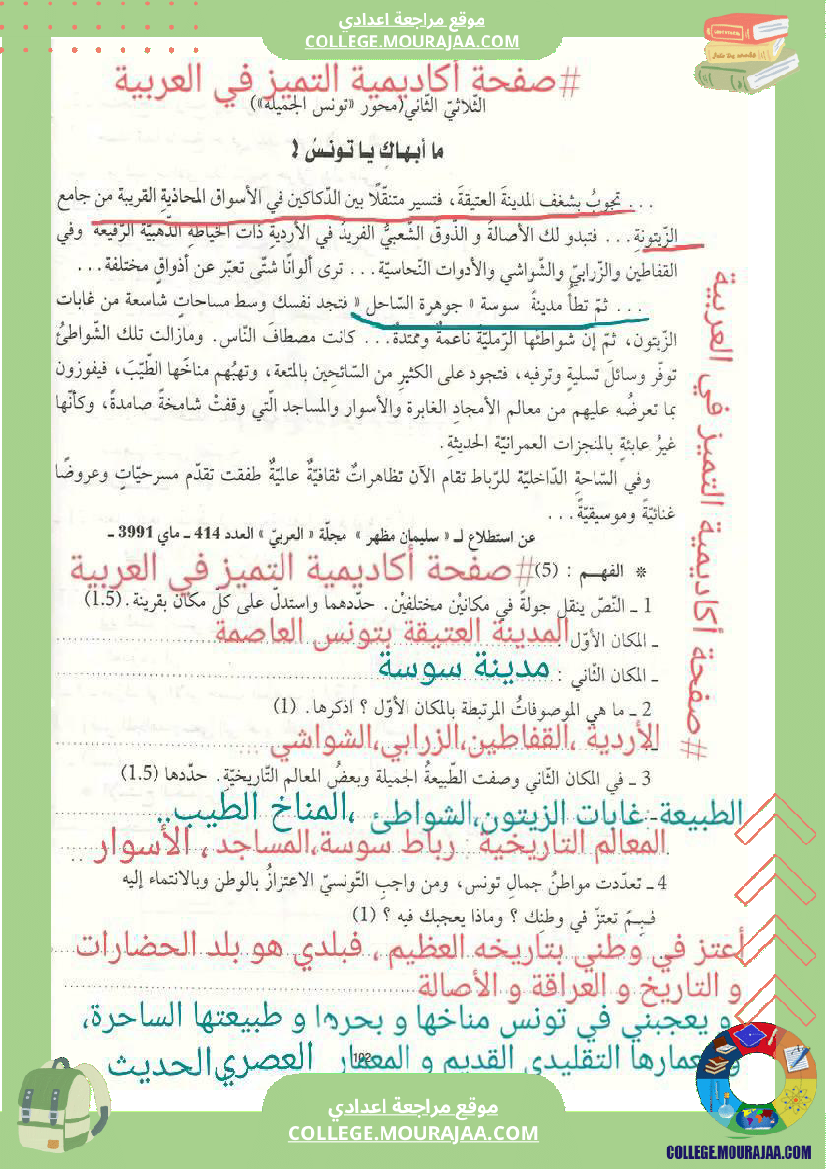 موقع مراجعة اعدادي
COLLEGE.MOURAJAA.COM
#صفحة أكاديمية التميز في العربية
الثّلاثيّ الثّاني (محور «تونس الجميلة»)
ما أبهاكِ يا تونسُ !
... تجوبُ بشغف المدينةَ العتيقةَ، فتسير متنقّلًا بين الدّكاكين في الأسواق المحاذيةِ القريبة من جامع
الزّيتونةِ... فتبدو لك الأصالةُ و الذّوقُ الشّعبيُّ الفريدُ في الأرديةِ ذات الخياطةِ الذّهبيّة الرّفيعة وفي
القفاطين والزّرابيّ والشّواشي والأدوات النّحاسيّة... ترى ألوانًا شتّى تعبّر عن أذواقٍ مختلفة...
... ثمّ تطأُ مدينةُ سوسة « جوهرة السّاحل « فتجد نفسك وسط مساحاتٍ شاسعة من غابات
الزّيتون، ثمّ إن شواطئها الرّمليّة ناعمةٌ وممتدّة... كانت مصطافَ النّاس. ومازالت تلك الشّواطئُ
توفّر وسائلَ تسليةٍ وترفيه، فتجود على الكثيرِ من السّائحين بالمتعة، وتهبُهم مناخَها الطّيّبَ، فيفوزون
بما تعرضُه عليهم من معالم الأمجادِ الغابرة والأسوار والمساجد الّتي وقفتْ شامخةً صامدةً، وكأنّها
غيرُ عابئةٍ بالمنجزات العمرانيّة الحديثةِ.
وفي السّاحةِ الدّاخليّة للرّباط تقام الآن تظاهراتٌ ثقافيّةٌ عاليّةٌ طفقت تقدّم مسرحيّاتٍ وعروضًا
غنائيّةً وموسيقيّةً...
عن استطلاع لـ « سليمان مظهر » مجلّة « العربيّ » العدد 414 ــ ماي 3991 ــ
* الفهـم : (5)
#صفحة أكاديمية التميز في العربية
1 ــ النّصّ ينقل جولةً في مكانيْن مختلفيْن. حدّدهما واستدلّ على كلّ مكان بقرينة. (1.5)
ــ المكان الأوّل المدينة العتيقة بتونس العاصمة
ــ المكان الثّاني : مدينة سوسة
2 ــ ما هي الموصوفاتُ المرتبطة بالمكان الأوّل ؟ اذكرها. (1)
الأردية ،القفاطين،الزرابي،الشواشي
3 ــ في المكان الثّاني وصفت الطّبيعةُ الجميلة وبعضُ المعالم التّاريخيّة. حدّدها (1.5)
الطبيعة- غابات الزيتون،الشواطئ ،المناخ الطيب..
المعالم التاريخية : رباط سوسة،المساجد ، الأسوار
4 ــ تعدّدت مواطنُ جمالِ تونس، ومن واجبِ التّونسيّ الاعتزازُ بالوطن وبالانتماء إليه
فـبِـمَ تعتزّ في وطنِك ؟ وماذا يعجبك فيه ؟ (1)
أعتز في وطني بتاريخه العظيم ، فبلدي هو بلد الحضارات
و التاريخ و العراقة و الأصالة
و يعجبني في تونس مناخها و بحرها و طبيعتها الساحرة،
و معمارها التقليدي القديم و المعمار العصري الحديث
102
#صفحة أكاديمية التميز في العربية
موقع مراجعة اعدادي
COLLEGE.MOURAJAA.COM
COLLEGE.MOURAJAA.COM